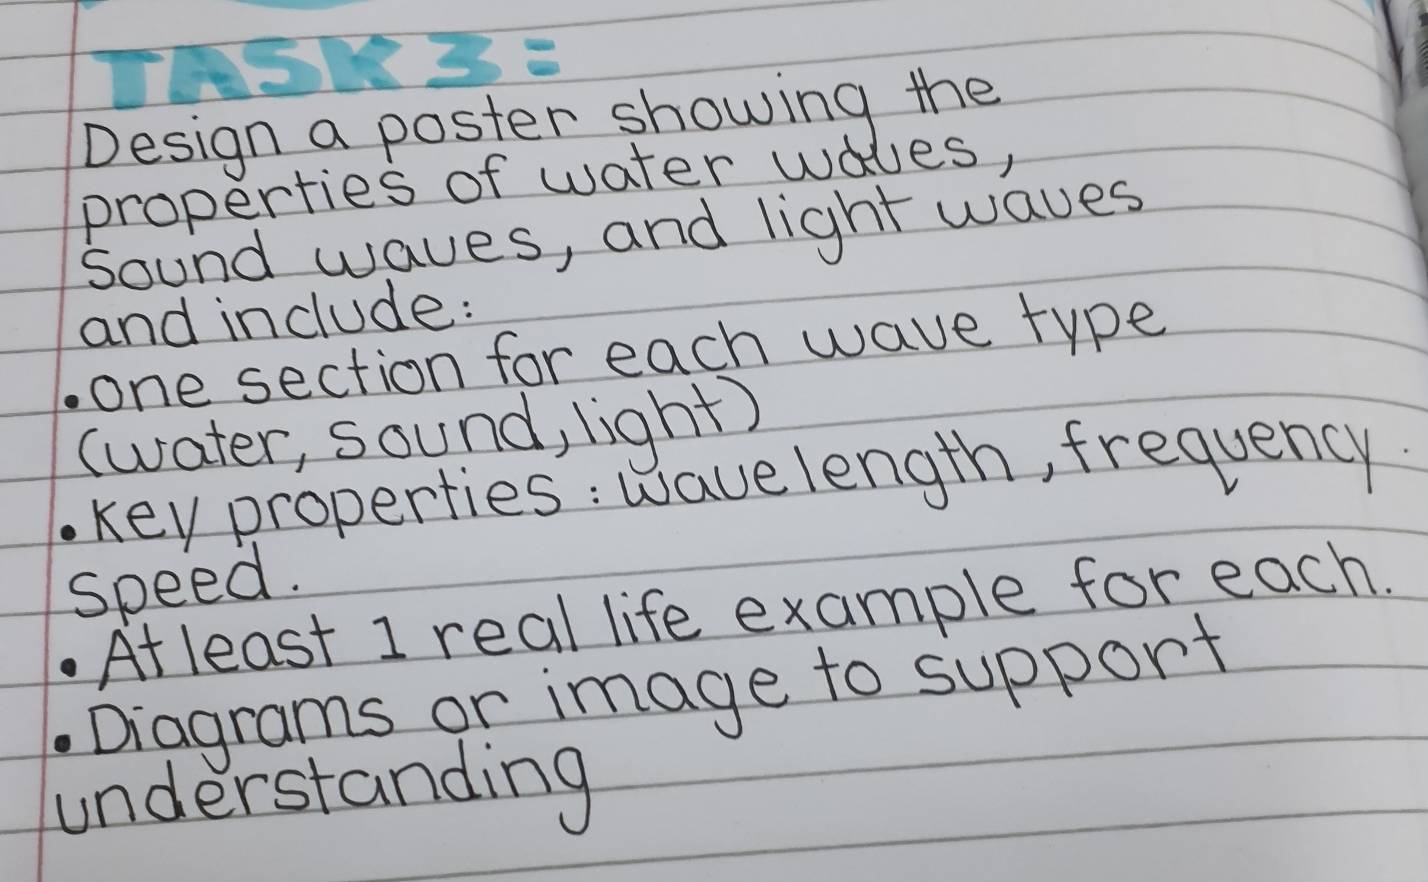 TASK 3:
Design a poster showing the
properties of water waves,
sound waves, and light waves
and include:
• one section for each wave type
(water, sound, light)
• Key properties: wavelength, frequency.
speed.
• At least 1 real life example for each.
• Diagrams or image to support
understanding